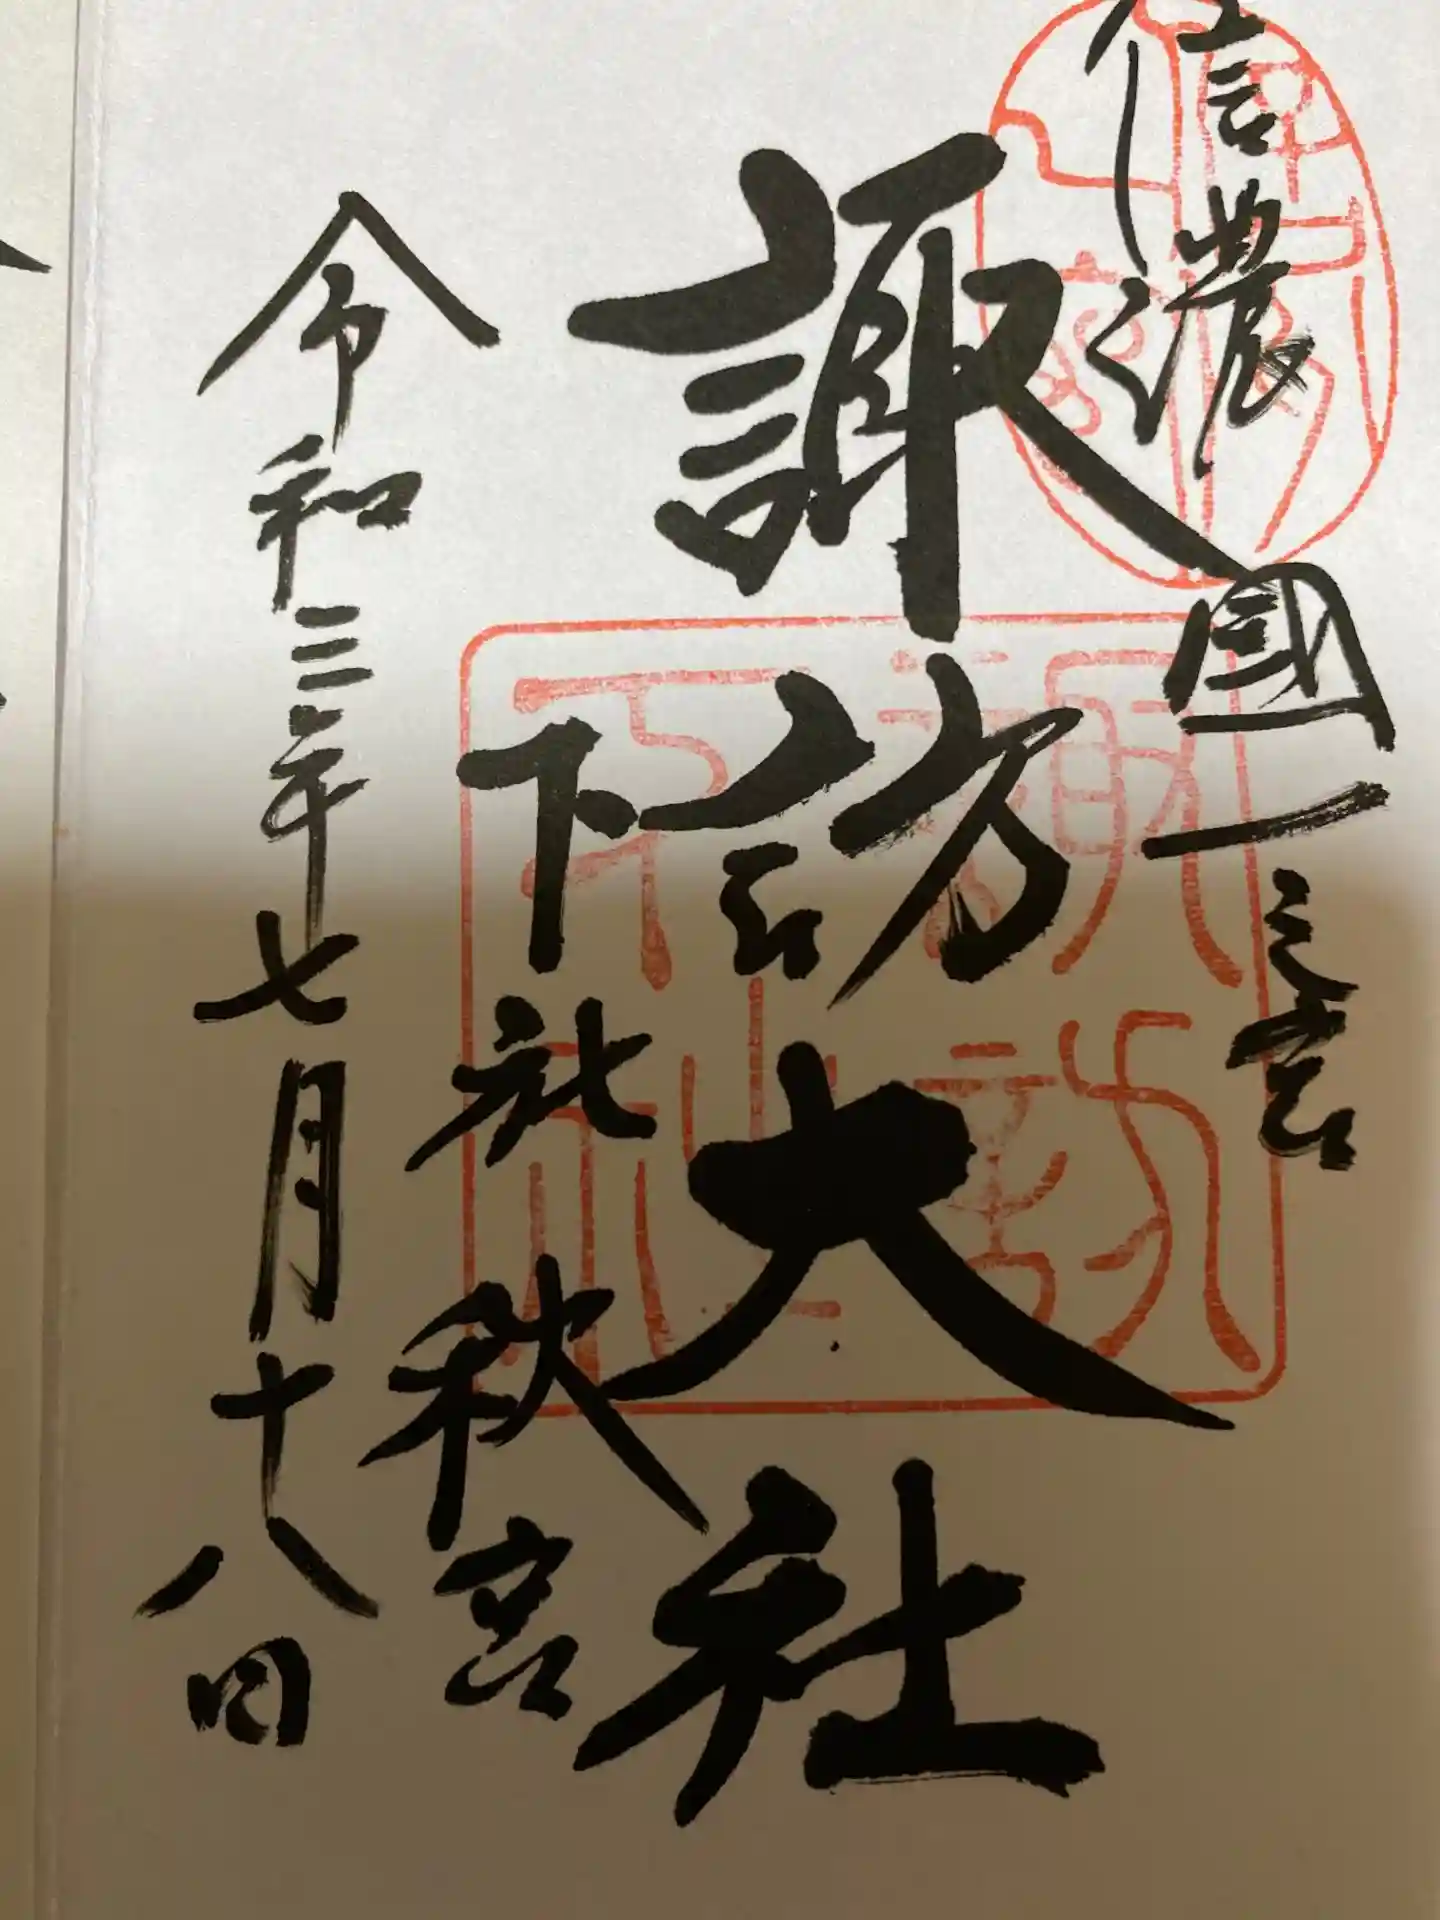 信濃國一之宮
諏訪大社
下社秋宮
令和三年七月十八日
諏訪
下社